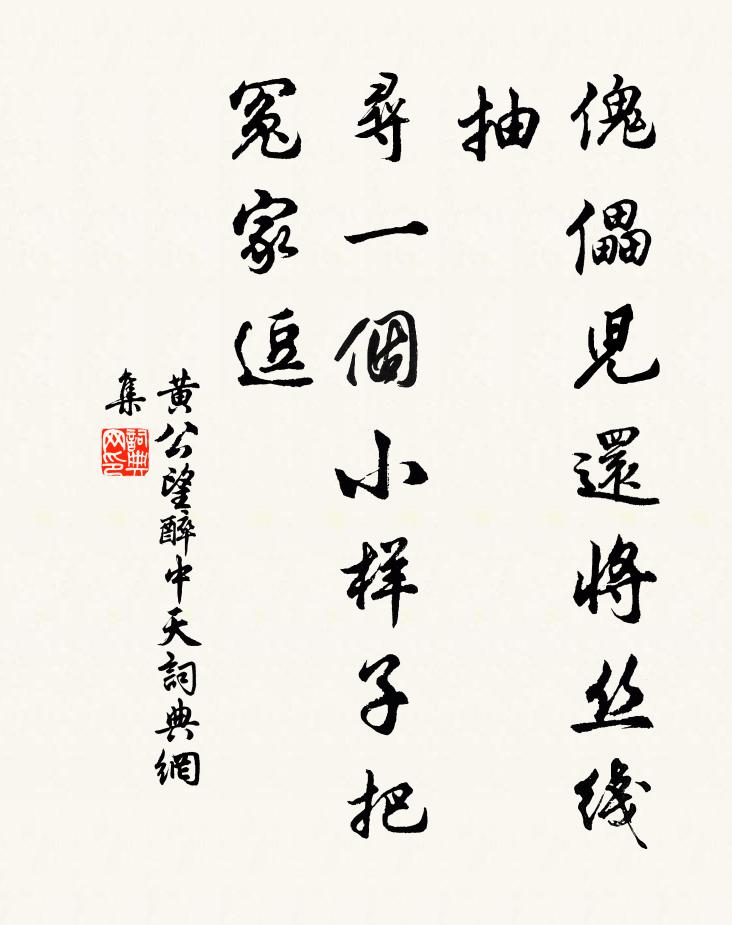 傀儡兒還將丝綫
抽
尋一個小样子把
冤家逗
黄公望醉中天詞典網
集
詞典
网印